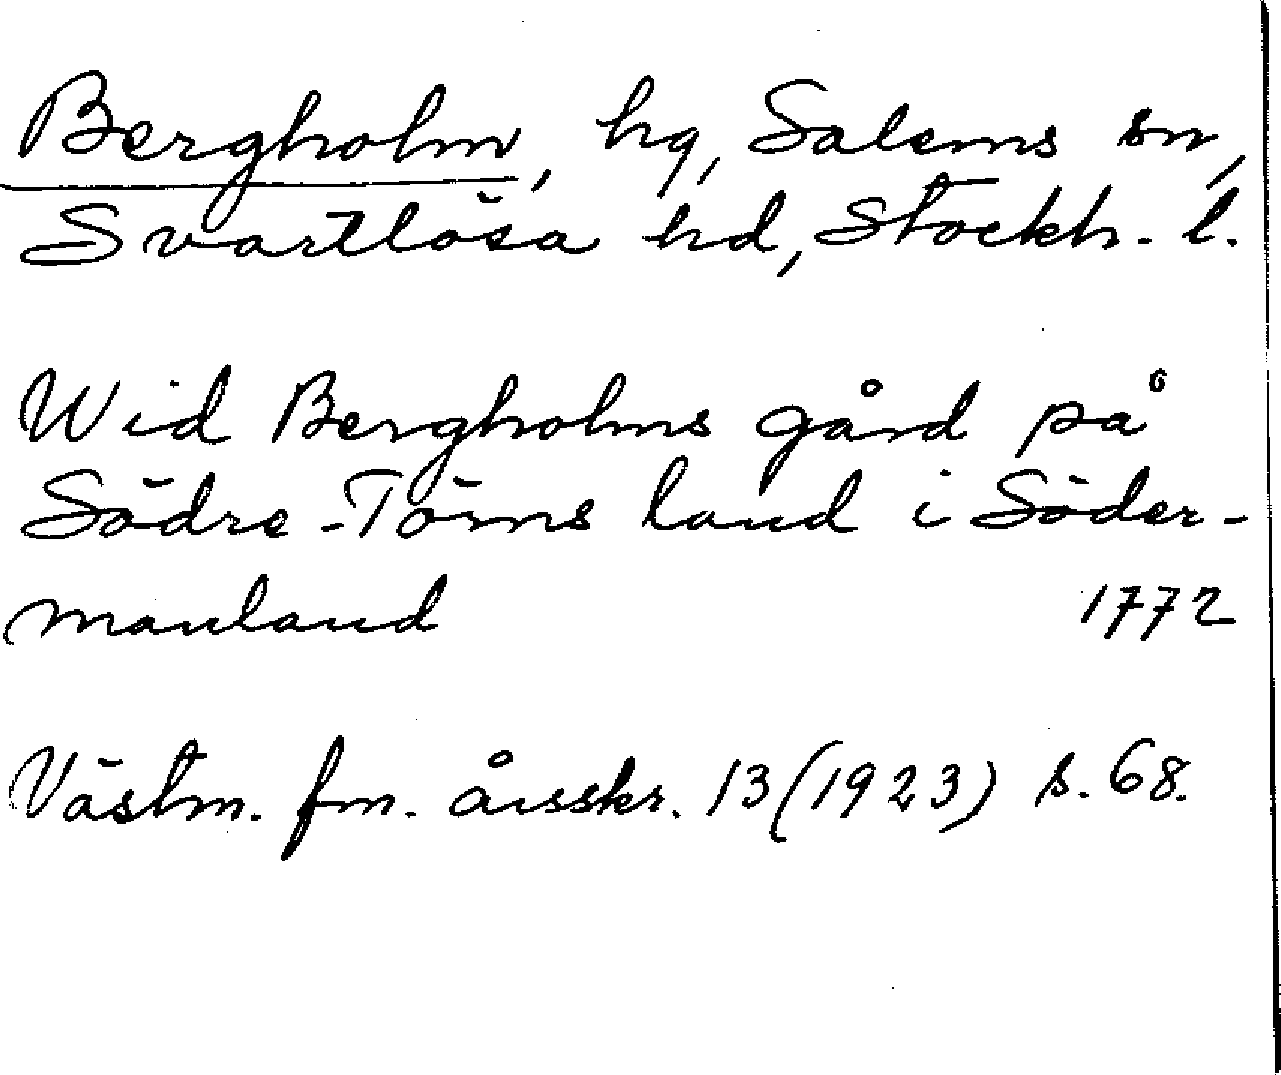 Bergholm, hg, Salems sn,
Svartlösa hd, Stockh. l.
Wid Bergholms gård på
Södre-Törns land i Söder-
manland 1772
Västm. fm. årsskr. 13 (1923) s. 68.